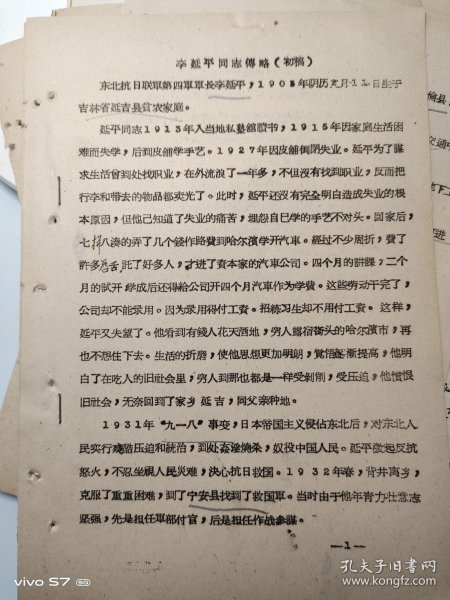 李延平同志傳略（初稿）
东北抗日联軍第四軍軍长李延平，1903年阴历 月11日生于
吉林省延吉县貧农家庭。
延平同志1913年入当地私塾舘讀书，1915年因家庭生活困
难而失学，后到皮舖学手艺。1927年因皮舖倒閉失业。延平为了謀
求生活曾到处找职业，在外流浪了一年多，不但沒有找到职业，反而把
行李和带去的物品都卖光了。此时，延平还沒有完全明白造成失业的根
本原因，但他已知道了失业的痛苦，埋怨自已学的手艺不对头。回家后，
七拼八湊的弄了几个錢作路費到哈尔濱学开汽車。經过不少周折，費了
許多唇舌託了好多人，才进了資本家的汽車公司。四个月的詳課，二个
月的試开，学成后还得給公司开四个月汽車作为学費。这些劳动干完了，
公司却不能录用。因为录用得付工資。招练习生却不用付工資。这样，
延平又失望了。他看到有錢人花天酒地，穷人露宿街头的哈尔濱市，再
也不想住下去。生活的折磨，使他思想更加明朗，覚悟逐漸提高，他明
白了在吃人的旧社会里，穷人到那也都是一样受剝削，受压迫，他憤恨
旧社会，无奈回到了家乡延吉，同父亲种地。
1931年"九一八"事变，日本帝国主义侵佔东北后，对东北人
民实行残酷压迫和統治，到处奸淫燒杀，奴役中国人民。延平激起反抗
怒火，不忍坐視人民災难，决心抗日救国。1932年春，背井离乡，
克服了重重困难，到了宁安县找到了救国軍。当时由于他年青力壮意志
坚强，先是担任軍部付官，后是担任作战参謀。
—1—
vivo S7 5G
孔夫子旧书网